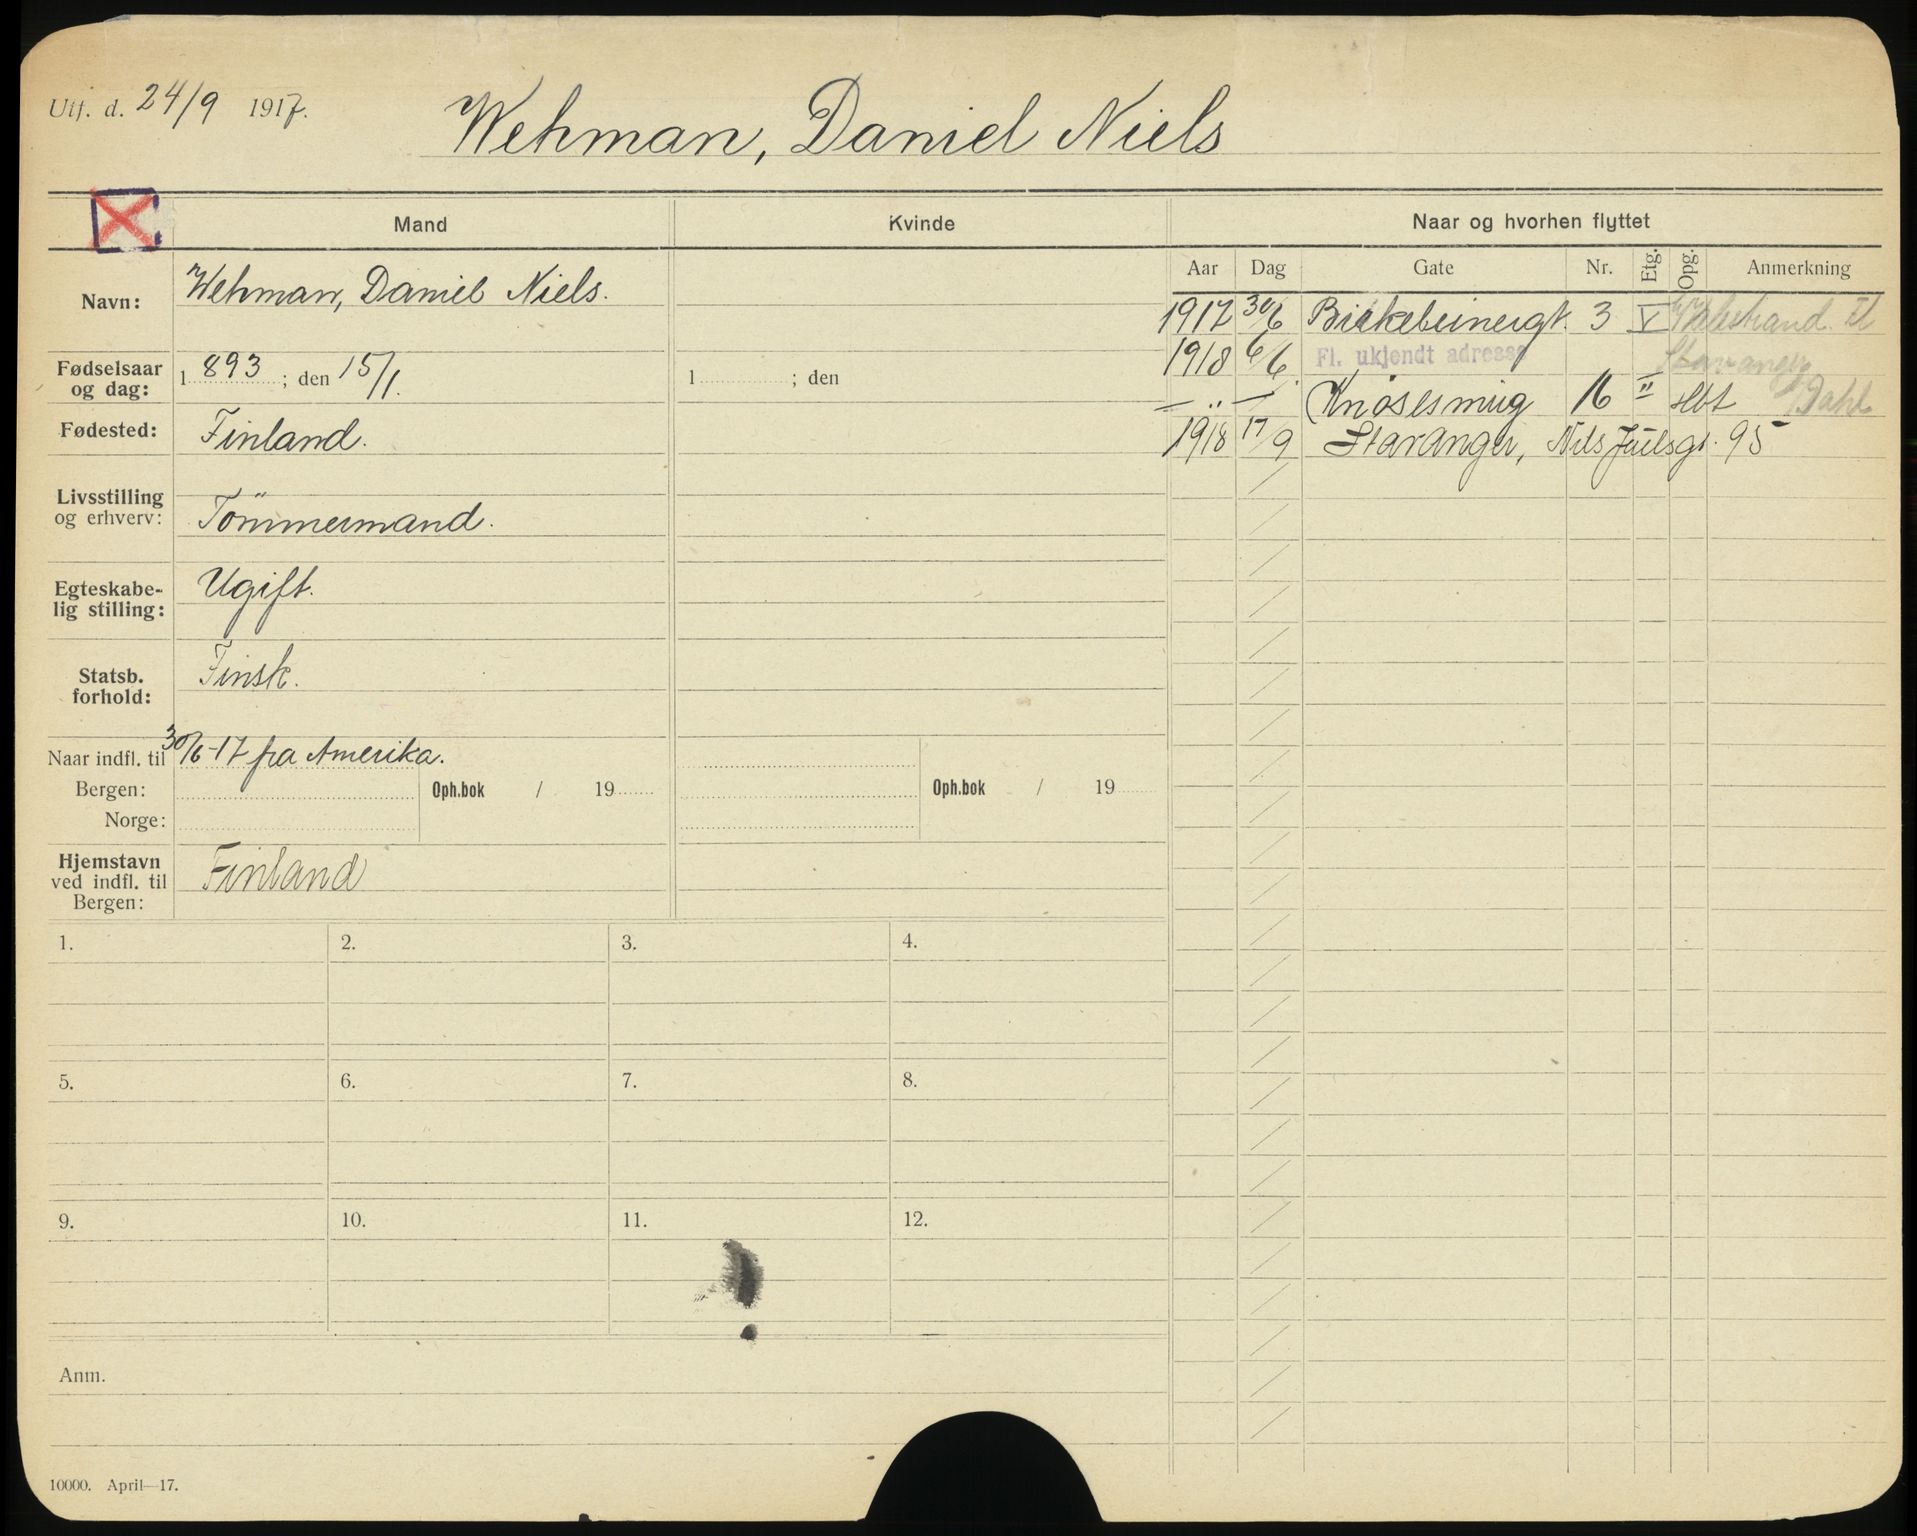 Utf. d. 24/9 1917.
Wehman, Daniel Niels
Mand
Kvinde
Naar og hvorhen flyttet
Aar Dag Gate Nr. Etg. Opg. Anmerkning
Navn: Wehman, Daniel Niels.
Fødselsaar og dag: 1893; den 15/1.
1 ; den
Fødested: Finland.
Livsstilling
og erhverv: Tömmermand.
Egteskabe-
lig stilling: Ugift.
Statsb.
forhold: Finsk.
Naar indfl. til 30/6-17 fra Amerika.
Bergen: Oph.bok / 19 Oph.bok / 19
Norge:
Hjemstavn
ved indfl. til
Bergen: Finland
1917 30/6 Birkebeinergt. 3 V
1918 6/6 Fl. ukjendt adresse Stavanger
— " — Knøsesmug 16 II Hbt Dahl
1918 17/9 Stavanger, Nils Juelsgt. 95
1. 2. 3. 4.
5. 6. 7. 8.
9. 10. 11. 12.
Anm.
10000. April—17.